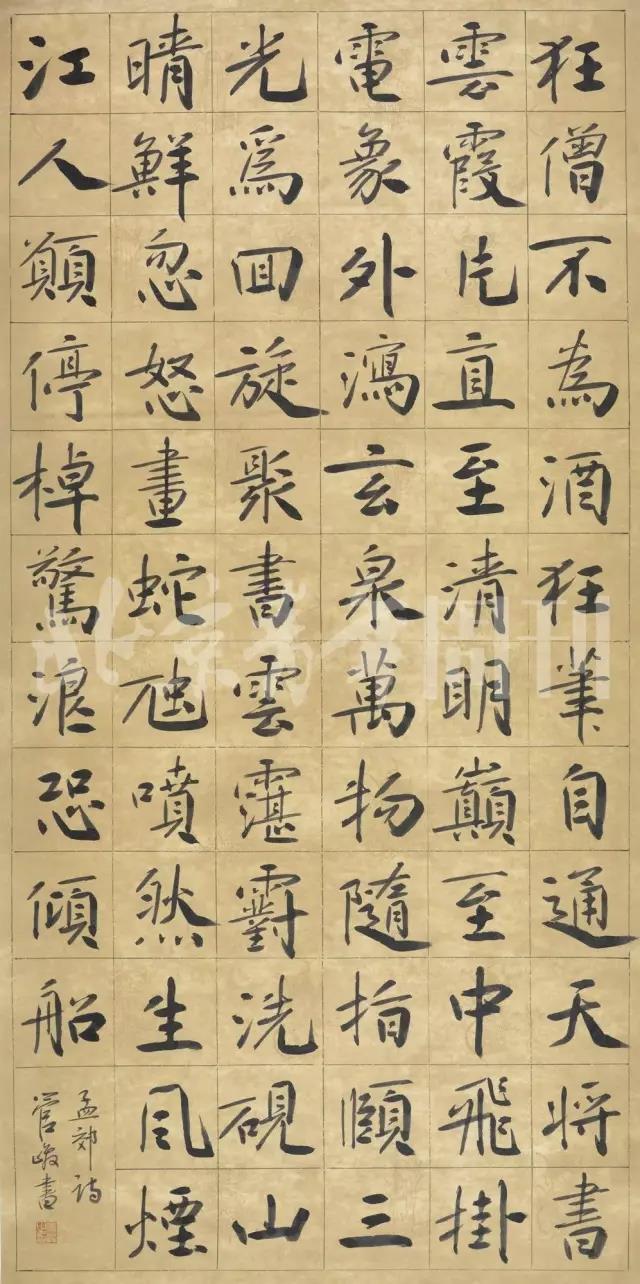 狂僧不為酒狂筆自通天將書
雲霞片直至清明巔至中飛掛
電象外瀉玄泉萬物隨指顧三
光爲回旋聚書雲霮䨴洗硯山
晴鮮忽怒畫蛇虺噴然生風煙
江人願停棹驚浪恐傾船
孟郊詩
管峻書
北京青年周刊